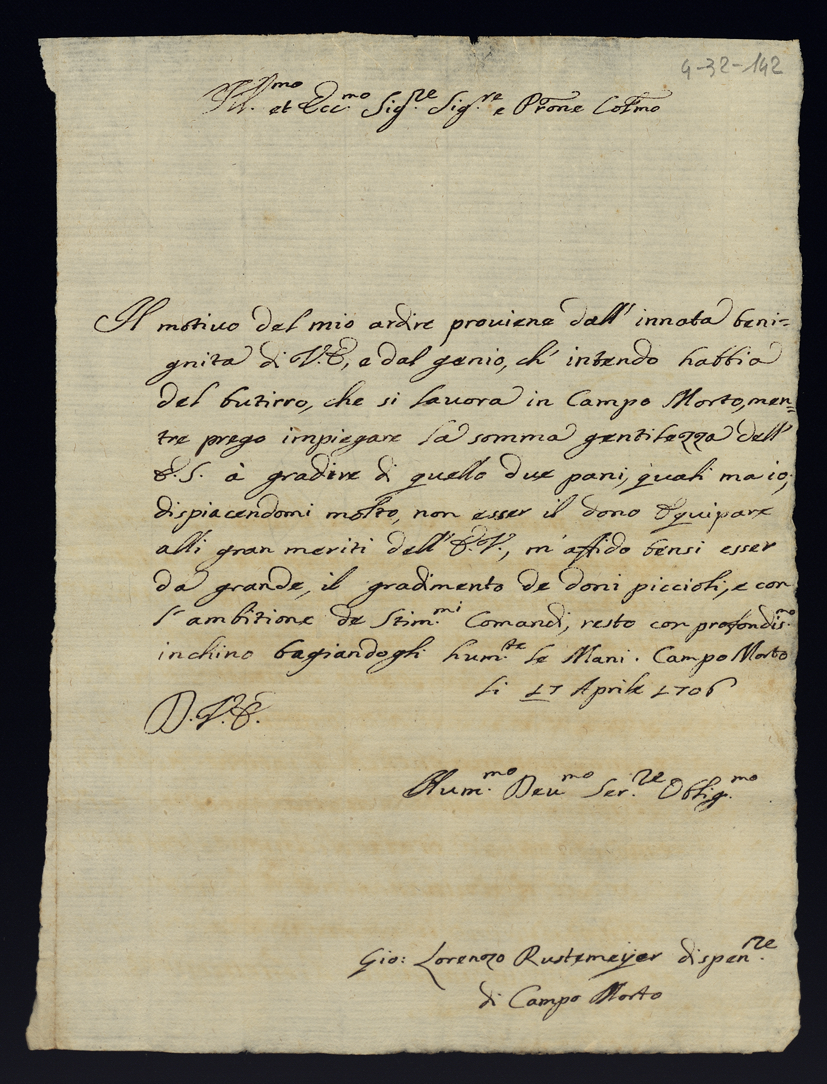 4-32-142
Ill.mo et Ecc.mo Sig.re Sig.re e Prone Colmo
Il motivo del mio ardire proviene dall' innata beni=
gnita di V.E., e dal genio, ch' intendo habbia
del butirro, che si lavora in Campo Morto, men=
tre prego impiegare la somma gentilezza dell'
E.S. à gradire di quello due pani, quali ma io,
dispiacendomi molto, non esser il dono Equipare
alli gran meriti dell' E.V., m'affido bensi esser
da grande, il gradimento de doni piccioli, e con
l'ambitione de Stim.mi Comandi, resto con profondis.mo
inchino bagiandogli hum.te le Mani. Campo Morto
li 17 Aprile 1706
D.V.E.
Hum.mo Deu.mo Ser.re Oblig.mo
Gio: Lorenzo Rustemeijer dispen.re
di Campo Morto